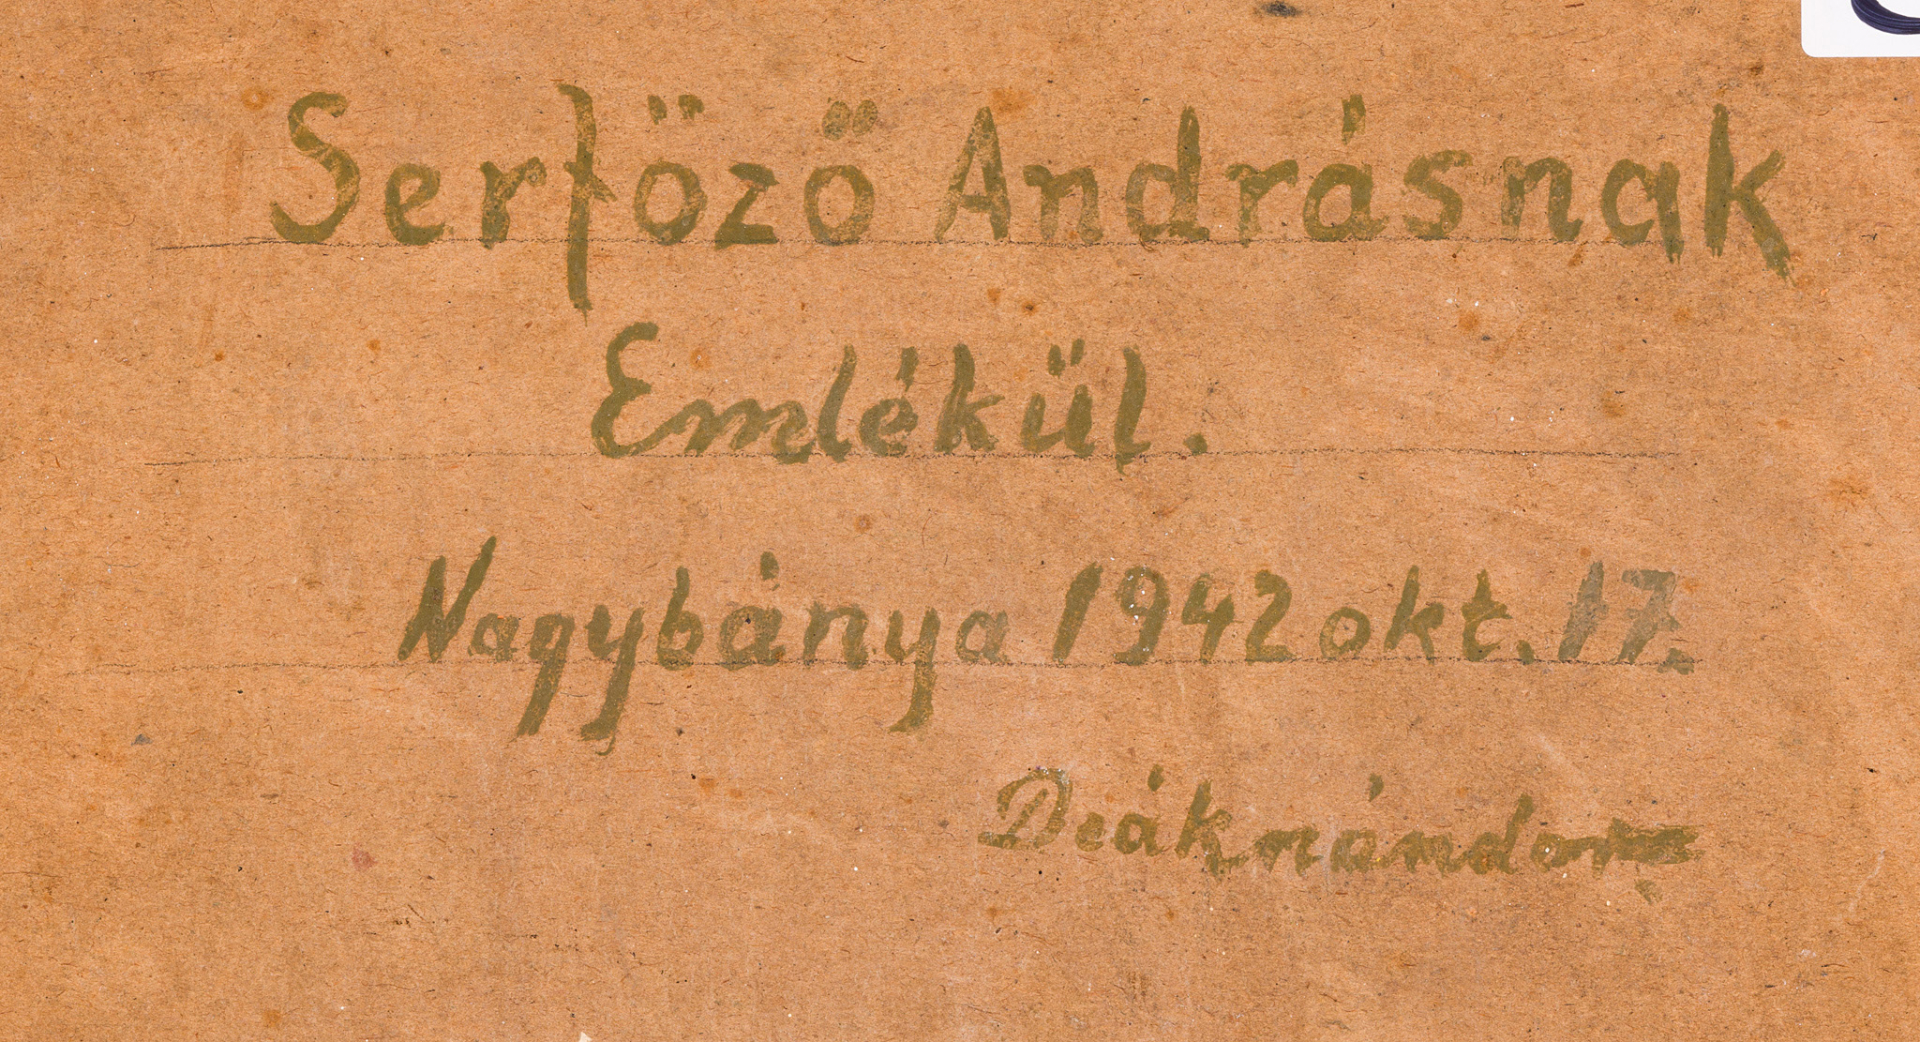 Serfözö Andrásnak
Emlékül.
Nagybánya 1942 okt. 17.
Deáknándor